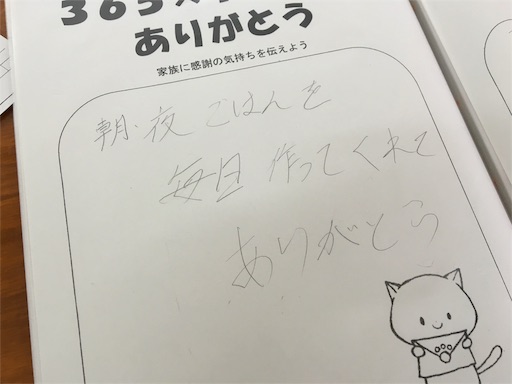 365
ありがとう
家族に感謝の気持ちを伝えよう
朝・夜 ごはんを
毎日 作ってくれて
ありがとう